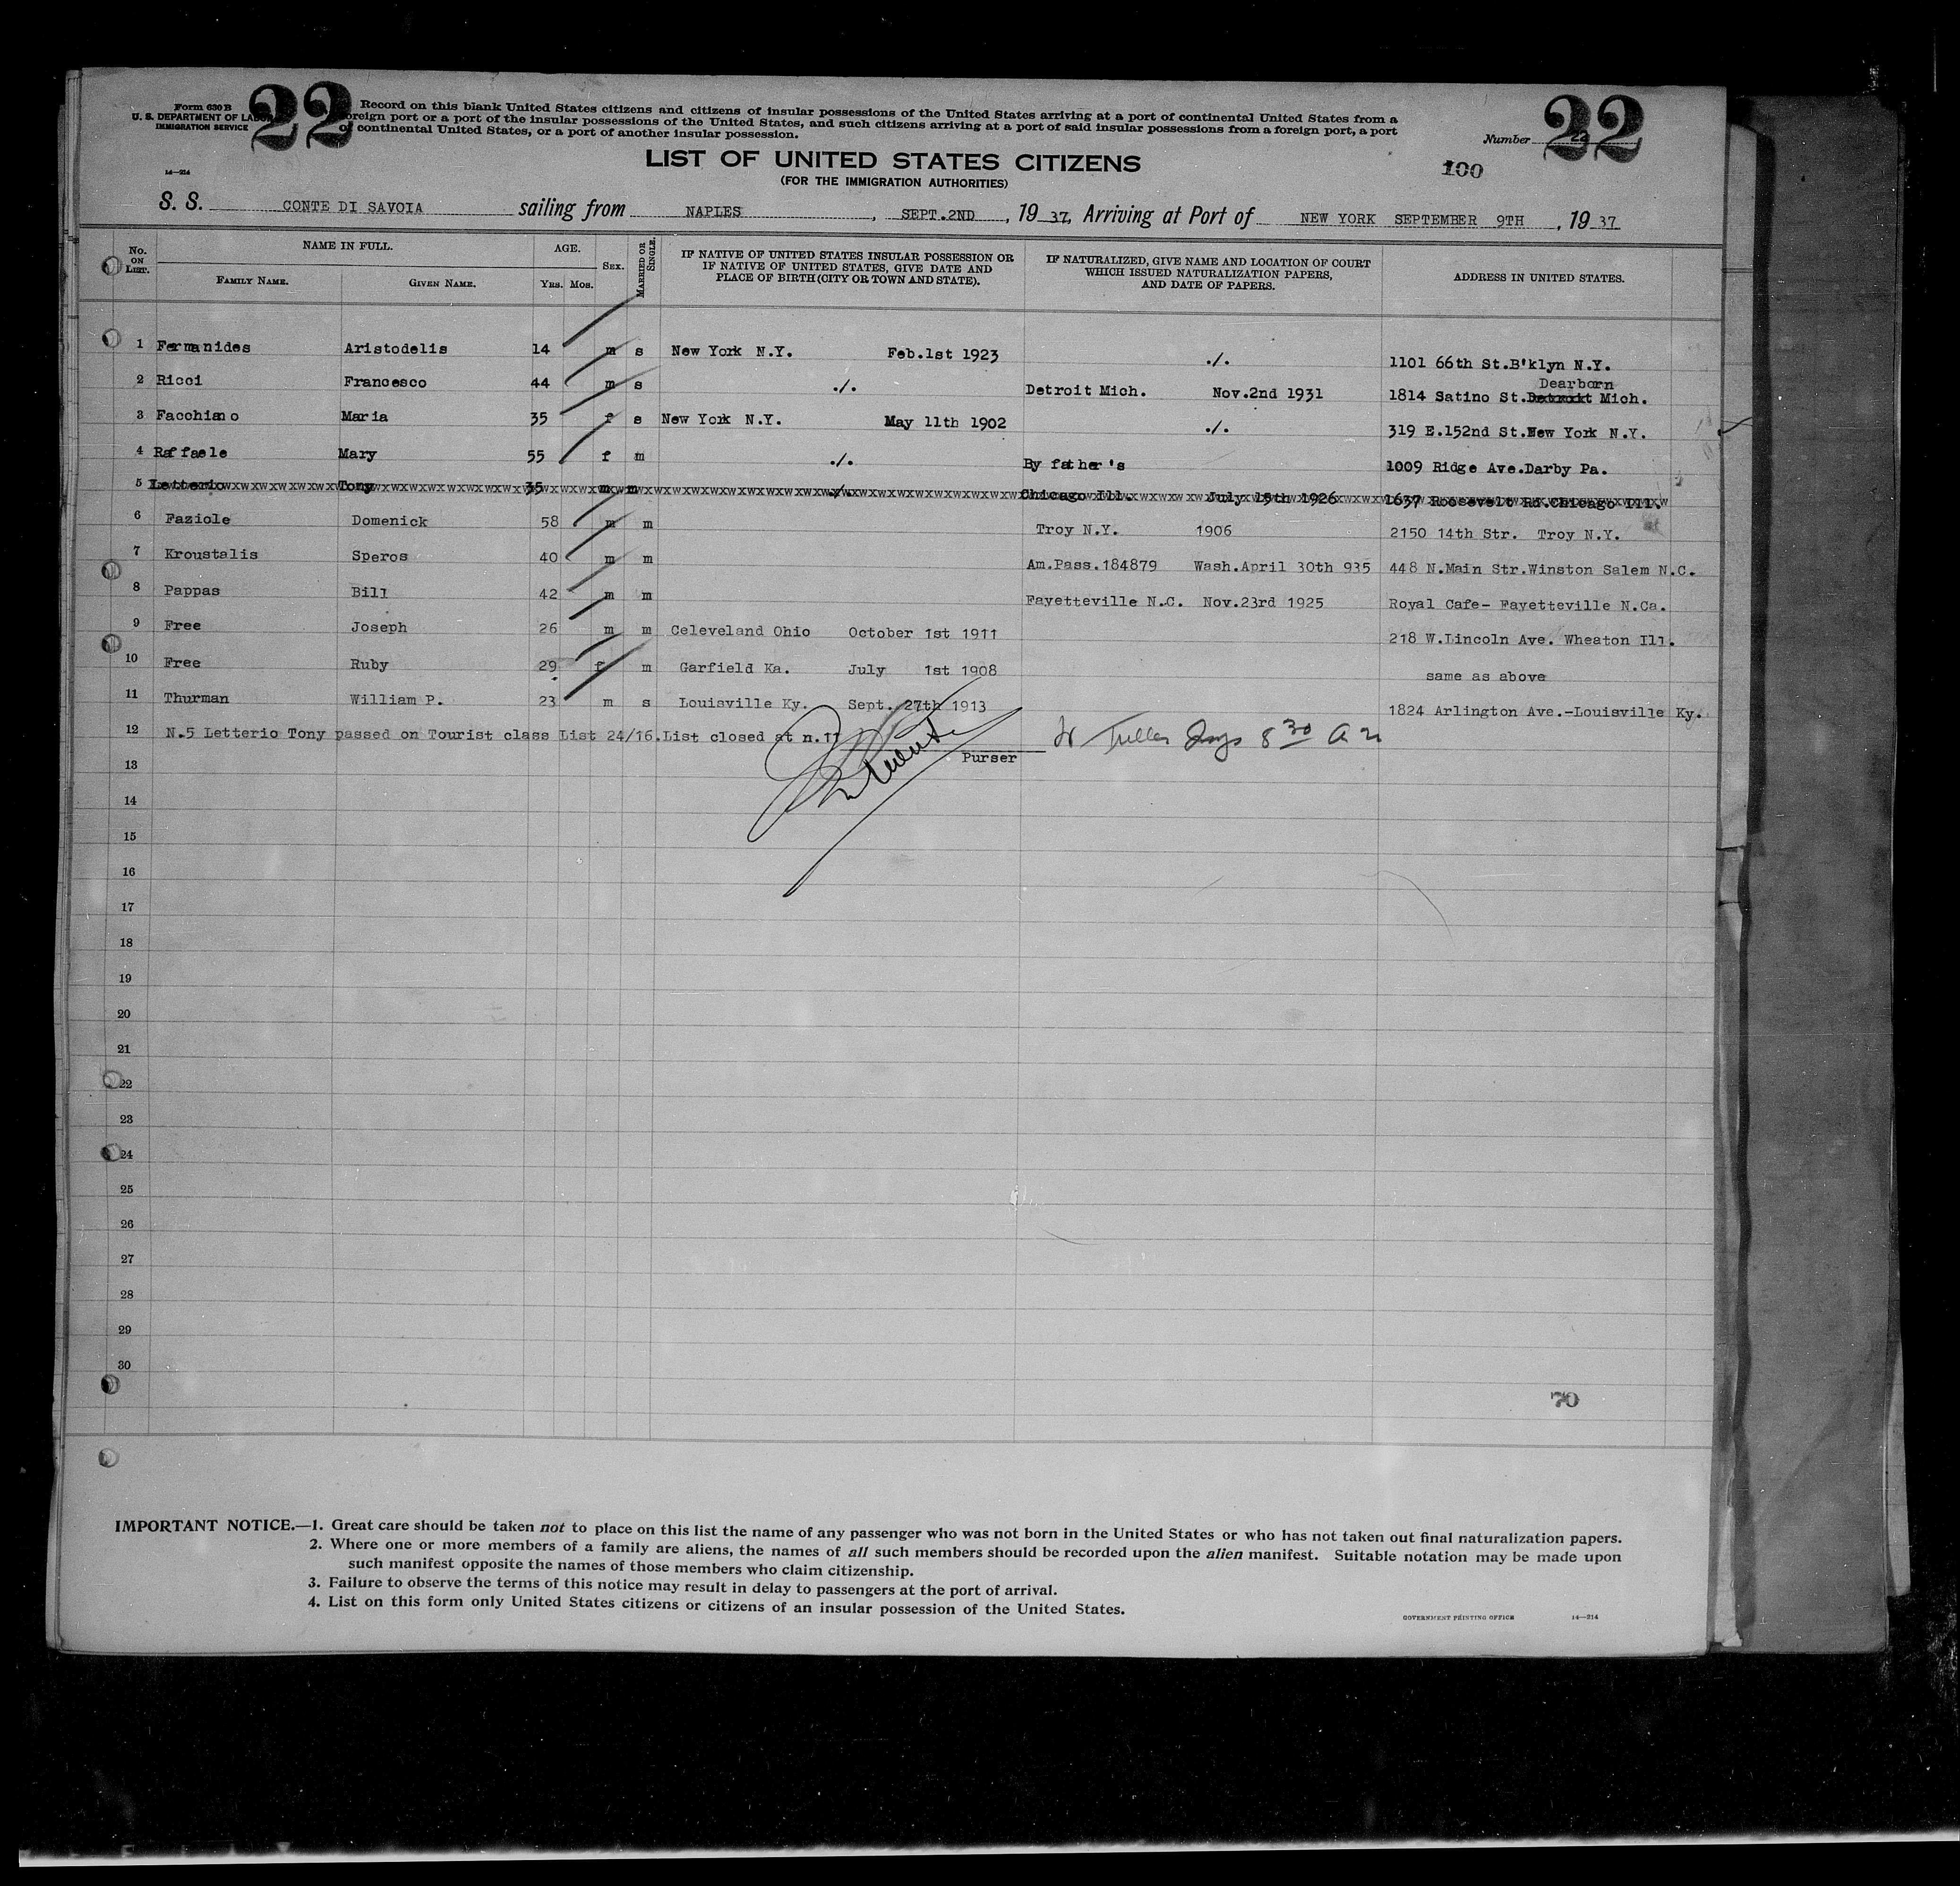 Form 630 B
U. S. DEPARTMENT OF LABOR
IMMIGRATION SERVICE
22
Record on this blank United States citizens and citizens of insular possessions of the United States arriving at a port of continental United States from a
foreign port or a port of the insular possessions of the United States, and such citizens arriving at a port of said insular possessions from a foreign port, a port
of continental United States, or a port of another insular possession.
Number 22
22
14—214
LIST OF UNITED STATES CITIZENS
(FOR THE IMMIGRATION AUTHORITIES)
100
S. S. CONTE DI SAVOIA sailing from NAPLES, SEPT.2ND, 19 37, Arriving at Port of NEW YORK SEPTEMBER 9TH, 19 37
No. ON LIST. NAME IN FULL. FAMILY NAME. GIVEN NAME. AGE. YRS. MOS. SEX. MARRIED OR SINGLE. IF NATIVE OF UNITED STATES INSULAR POSSESSION OR IF NATIVE OF UNITED STATES, GIVE DATE AND PLACE OF BIRTH (CITY OR TOWN AND STATE). IF NATURALIZED, GIVE NAME AND LOCATION OF COURT WHICH ISSUED NATURALIZATION PAPERS, AND DATE OF PAPERS. ADDRESS IN UNITED STATES.
1 Fermanides Aristodelis 14 m s New York N.Y. Feb.1st 1923 ./. 1101 66th St.B'klyn N.Y.
2 Ricci Francesco 44 m s ./. Detroit Mich. Nov.2nd 1931 1814 Satino St.Detroit Dearborn Mich.
3 Facchiano Maria 35 f s New York N.Y. May 11th 1902 ./. 319 E.152nd St.New York N.Y.
4 Raffaele Mary 55 f m ./. By father's 1009 Ridge Ave.Darby Pa.
5 Letterio Tony 35 m m ./. Chicago Ill. July 15th 1926 1637 Roosevelt Rd.Chicago Ill.
6 Faziole Domenick 58 m m Troy N.Y. 1906 2150 14th Str. Troy N.Y.
7 Kroustalis Speros 40 m m Am.Pass.184879 Wash.April 30th 935 448 N.Main Str.Winston Salem N.C.
8 Pappas Bill 42 m m Fayetteville N.C. Nov.23rd 1925 Royal Cafe- Fayetteville N.Ca.
9 Free Joseph 26 m m Celeveland Ohio October 1st 1911 218 W.Lincoln Ave. Wheaton Ill.
10 Free Ruby 29 f m Garfield Ka. July 1st 1908 same as above
11 Thurman William P. 23 m s Louisville Ky. Sept. 27th 1913 1824 Arlington Ave.-Louisville Ky.
12 N.5 Letterio Tony passed on Tourist class List 24/16.List closed at n.11
Purser
8 30 A
13
14
15
16
17
18
19
20
21
22
23
24
25
26
27
28
29
30
70
IMPORTANT NOTICE.—1. Great care should be taken not to place on this list the name of any passenger who was not born in the United States or who has not taken out final naturalization papers.
2. Where one or more members of a family are aliens, the names of all such members should be recorded upon the alien manifest. Suitable notation may be made upon
such manifest opposite the names of those members who claim citizenship.
3. Failure to observe the terms of this notice may result in delay to passengers at the port of arrival.
4. List on this form only United States citizens or citizens of an insular possession of the United States.
GOVERNMENT PRINTING OFFICE 14—214